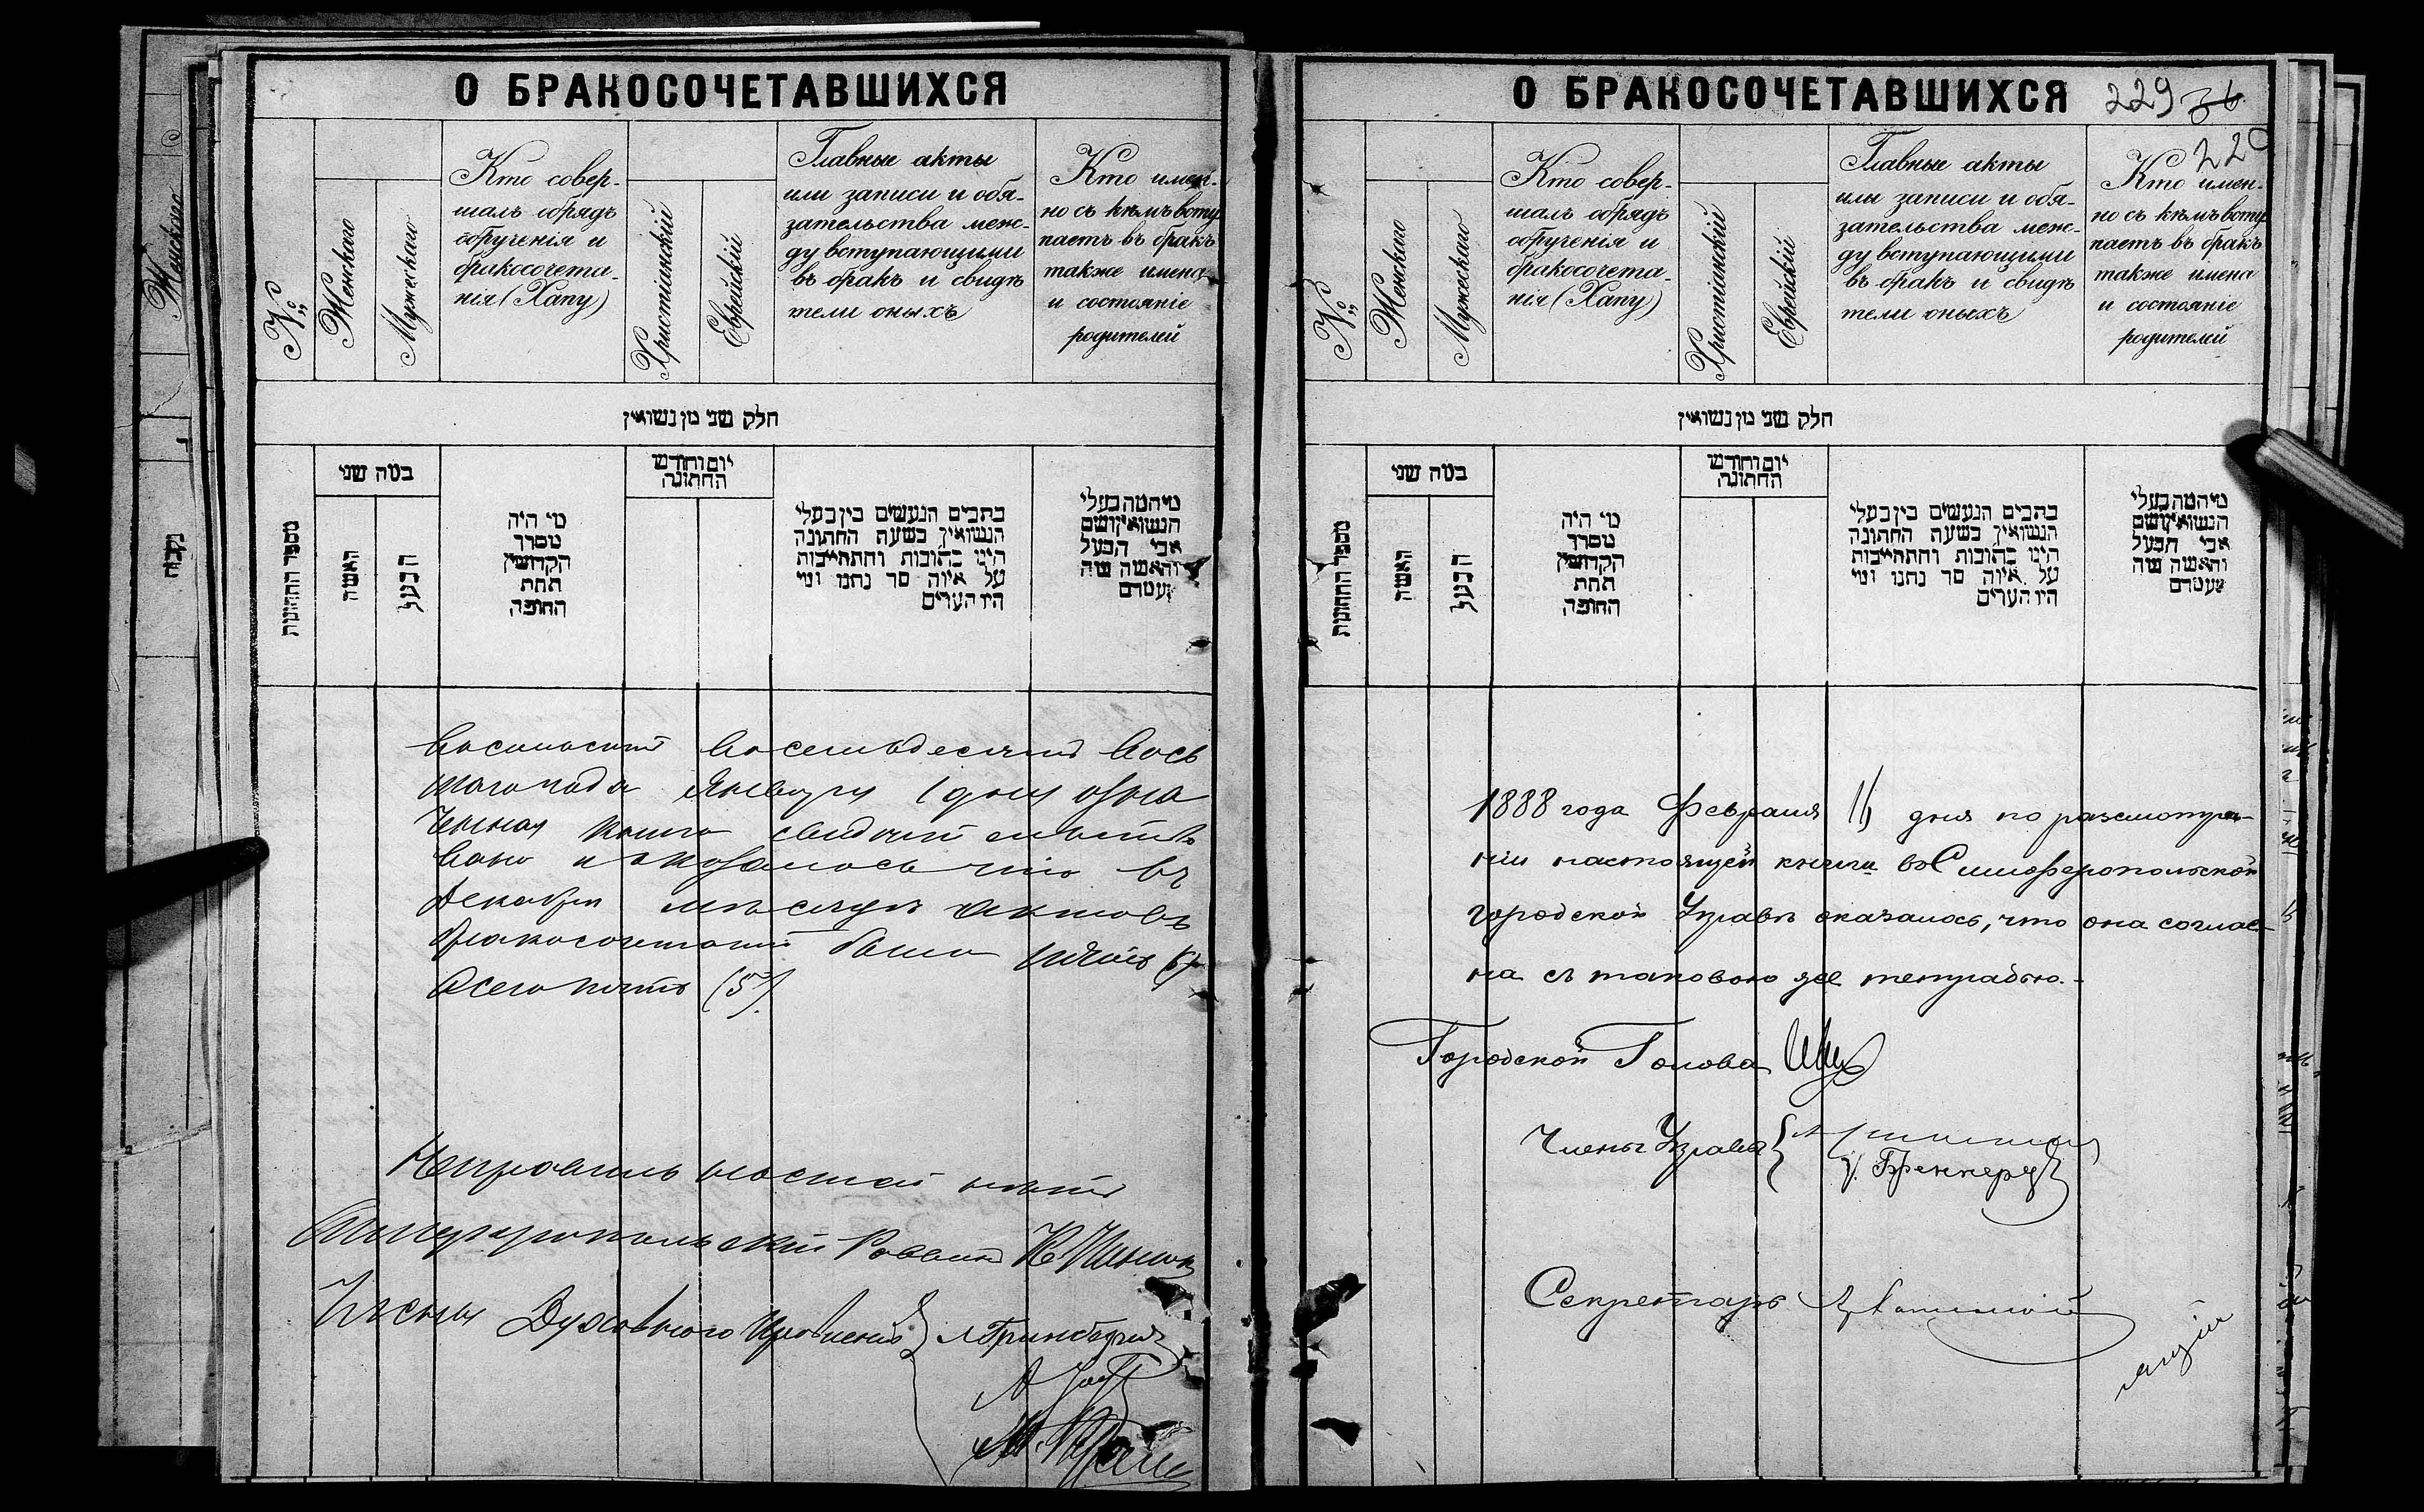 О БРАКОСОЧЕТАВШИХСЯ
№
Женскаго
Мужескаго
Кто совер-
шалъ обрядъ
обрученія и
бракосочета-
нія (Хапу)
Христіанскій
Еврейскій
Главные акты
или записи и обя-
зательства меж-
ду вступающими
въ бракъ и свидѣ
тели оныхъ
Кто имен-
но съ кѣмъ всту
паетъ въ бракъ
также имена
и состояніе
родителей
חלק שני מן נשואין
מספר החתונות
כמה שני
האשה
הבעל
מי היה
מסדר
הקדושין
תחת
החופה
יום וחודש
החתונה
כתבים הנעשים בין בעלי
הנשואין בשעת החתונה
היינו כתובות והתחייבות
על איזה סך נתנו ומי
היו העדים
מי המה בעלי
הנשואין ושם
אבי הבעל
והאשה ומה
מעמדם
восемьдесятъ вось
маго года Января 1 дня озна
ченная книга свидѣтельство
вана и оказалось что въ
Декабрѣ мѣсяцѣ актовъ
бракосочетаній было пять (5)
Всего пять (5).
Неправильностей нѣтъ
Симферопольскій Раввинъ
Члены Духовнаго Правленія
Гринберга
Женскаго
О БРАКОСОЧЕТАВШИХСЯ
229
220
№
Женскаго
Мужескаго
Кто совер-
шалъ обрядъ
обрученія и
бракосочета-
нія (Хапу)
Христіанскій
Еврейскій
Главные акты
или записи и обя-
зательства меж-
ду вступающими
въ бракъ и свидѣ
тели оныхъ
Кто имен-
но съ кѣмъ всту
паетъ въ бракъ
также имена
и состояніе
родителей
חלק שני מן נשואין
מספר החתונות
כמה שני
האשה
הבעל
מי היה
מסדר
הקדושין
תחת
החופה
יום וחודש
החתונה
כתבים הנעשים בין בעלי
הנשואין בשעת החתונה
היינו כתובות והתחייבות
על איזה סך נתנו ומי
היו העדים
מי המה בעלי
הנשואין ושם
אבי הבעל
והאשה ומה
מעמדם
1888 года Февраля 16 дня по разсмотре-
ніи настоящей книги въ Симферопольской
городской Управѣ оказалось, что она соглас-
на съ таковою же тетрадью.-
Городской Голова
Члены Управы
Секретарь